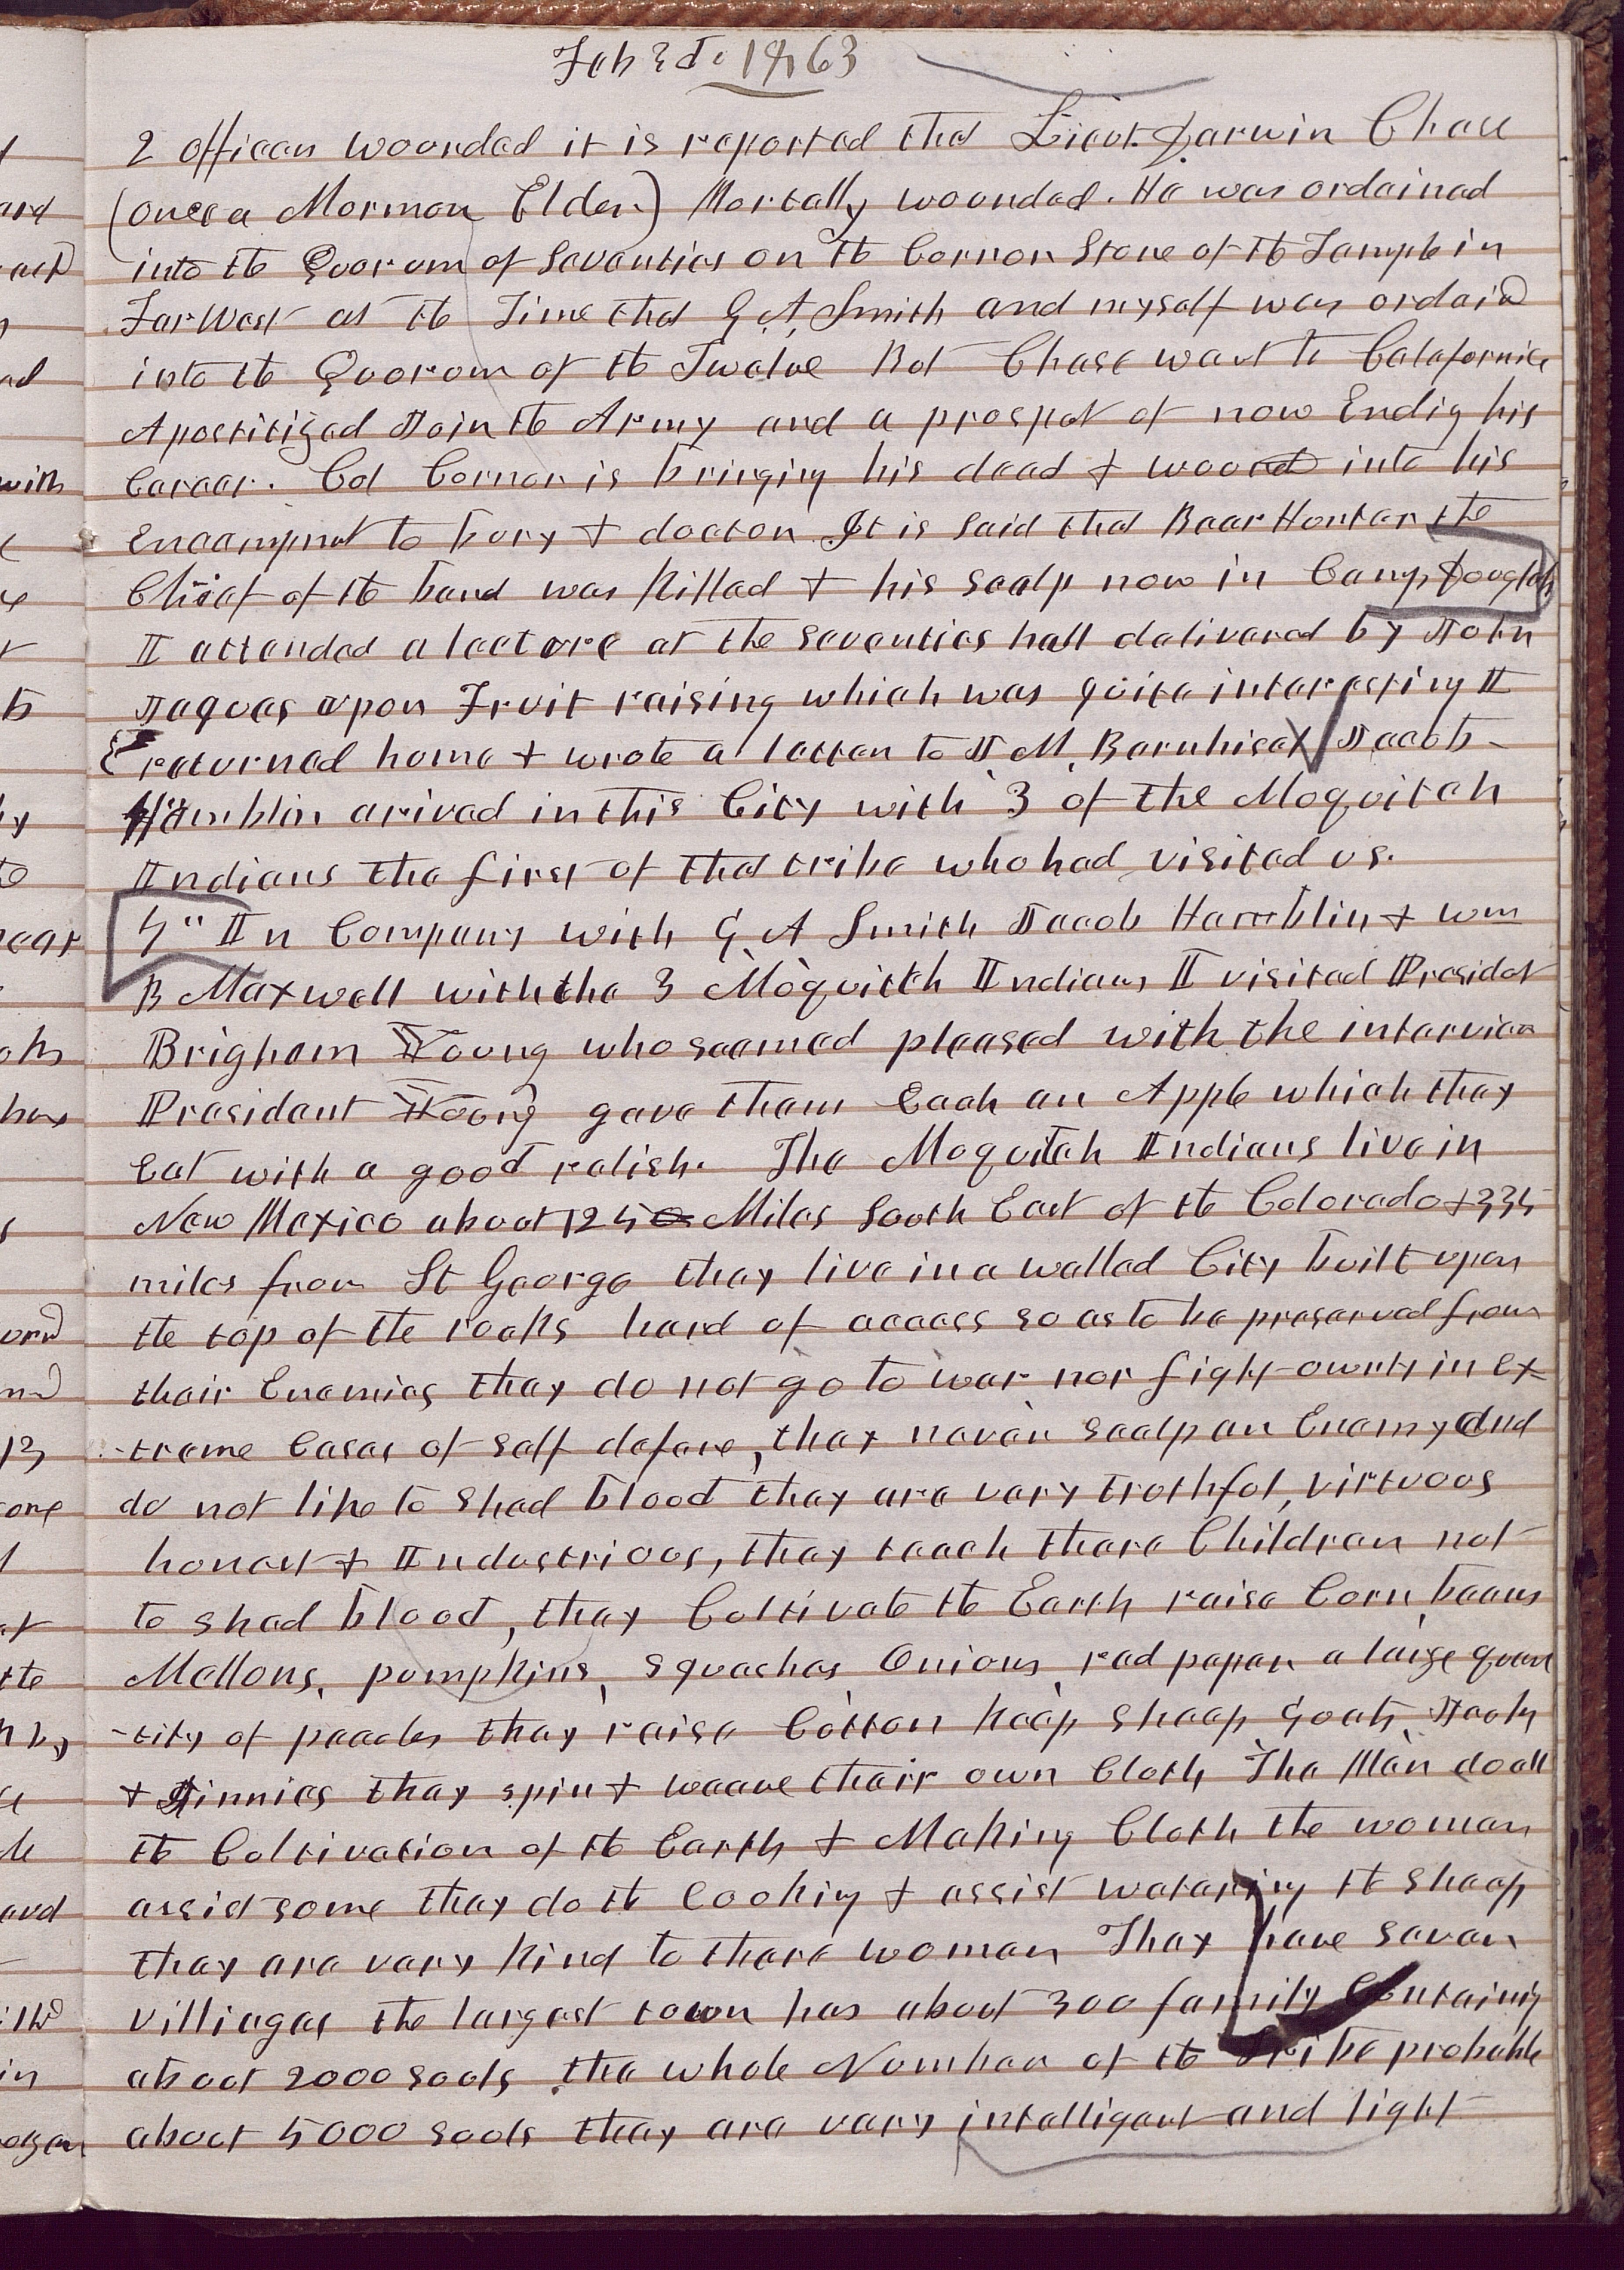 Feb 3d. 1863
2 officers wounded it is reported that Lieut. Darwin Chase
(once a Mormon Elder) Mortally wounded. He was ordained
into the Quorum of Seventies on the Cornor Stone of the Temple in
Far West at the Time that G A Smith and myself was ordaind
into the Quorom of the Twelve But Chase went to Calafornia
Apostitized Join the Army and a prospet of now Endig his
Career. Col Connor is bringing his dead & wound into his
Encampmet to bury & doctor It is said that Bear Hunter the
Chief of the band was killed & his scalp now in Camp Douglass
I attended a lecture at the seventies hall delivered by John
Jaques upon Fruit raising which was quite interesting I
returned home & wrote a letter to J M. Barnhisel Jacob
Hamblin arived in this City with 3 of the Moquitch
Indians the first of that tribe who had visited us.
4" In Company with G A Smith Jacob Hamblin & wm
B Maxwell with the 3 Moquitch Indians I visited Presidet
Brigham Young who seemed pleased with the interview
President Young gave them Each an Apple which they
Eat with a good relish. The Moquitch Indians live in
New Mexico about 125 Miles South East of the Colorado & 335
miles from St George they live in a walled City built upon
the top of the rocks hard of access so as to be preserved from
their Enemies they do not go to war nor fight ownly in ex-
-treme Cases of self defence, they never scalp an Enemy and
do not like to shed blood they are very truthful, virtuous
honest & Industrious, they teach there Children not
to shed blood, they Cultivate the Earth raise Corn, beans
Mellons, pumpkins, squashes, Onions, red peper a large quan
-tity of peaches they raise Cotton keep sheep Goats, Jacks
& Jinnies they spin & weave their own Cloth The Men do all
the Cultivation of the Earth & Making Cloth the women
assist some they do the Cooking & assist watering the sheep
they are very kind to there women They have seven
villiages the largest town has about 300 family Containing
about 2000 souls, the whole Number of the tribe probable
about 5000 souls they are very intelligent and light